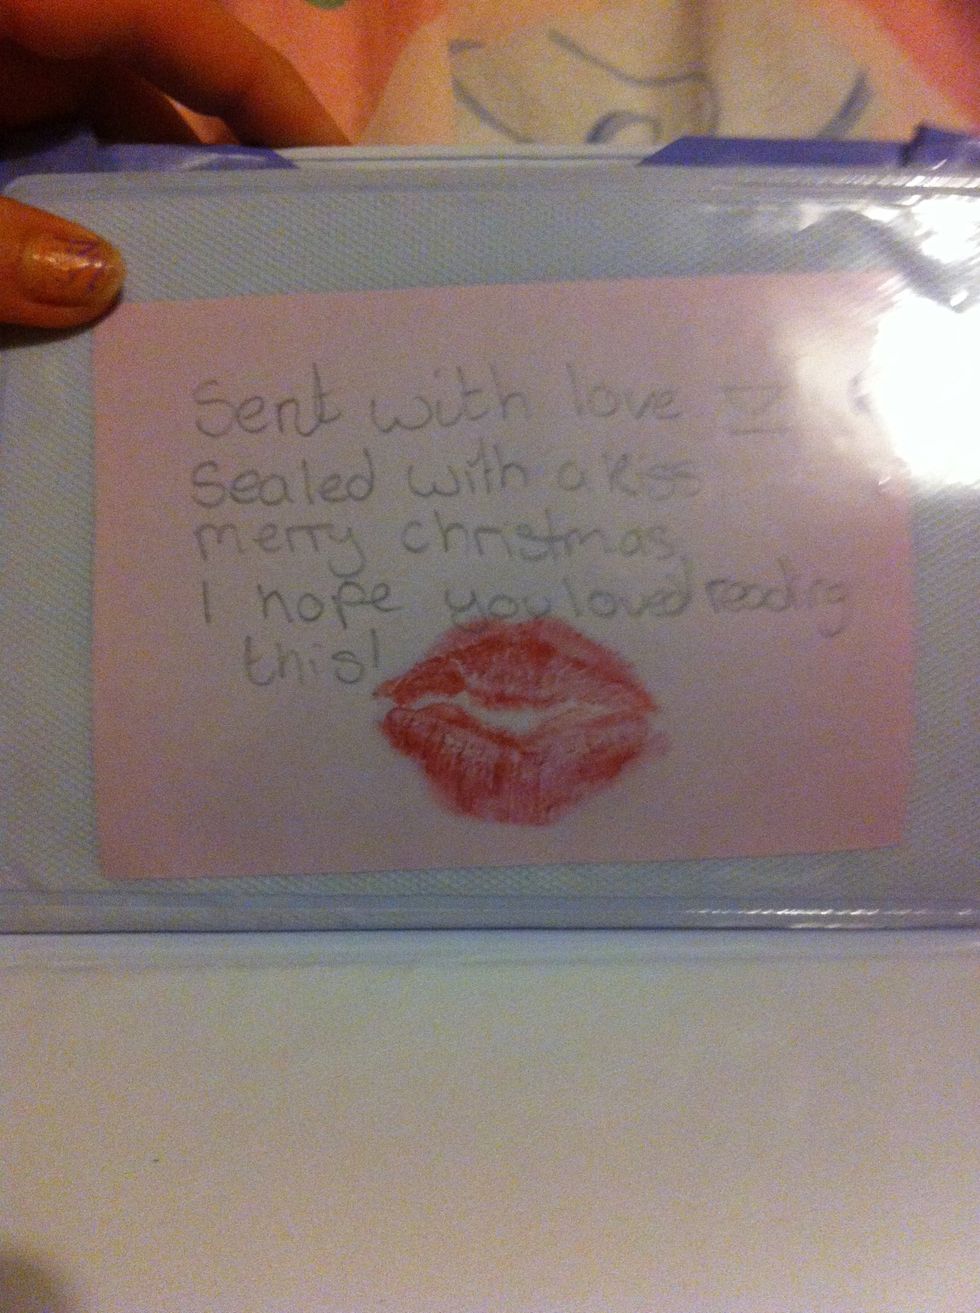 Sent with love
Sealed with a kiss
merry christmas
I hope you loved reading
this!